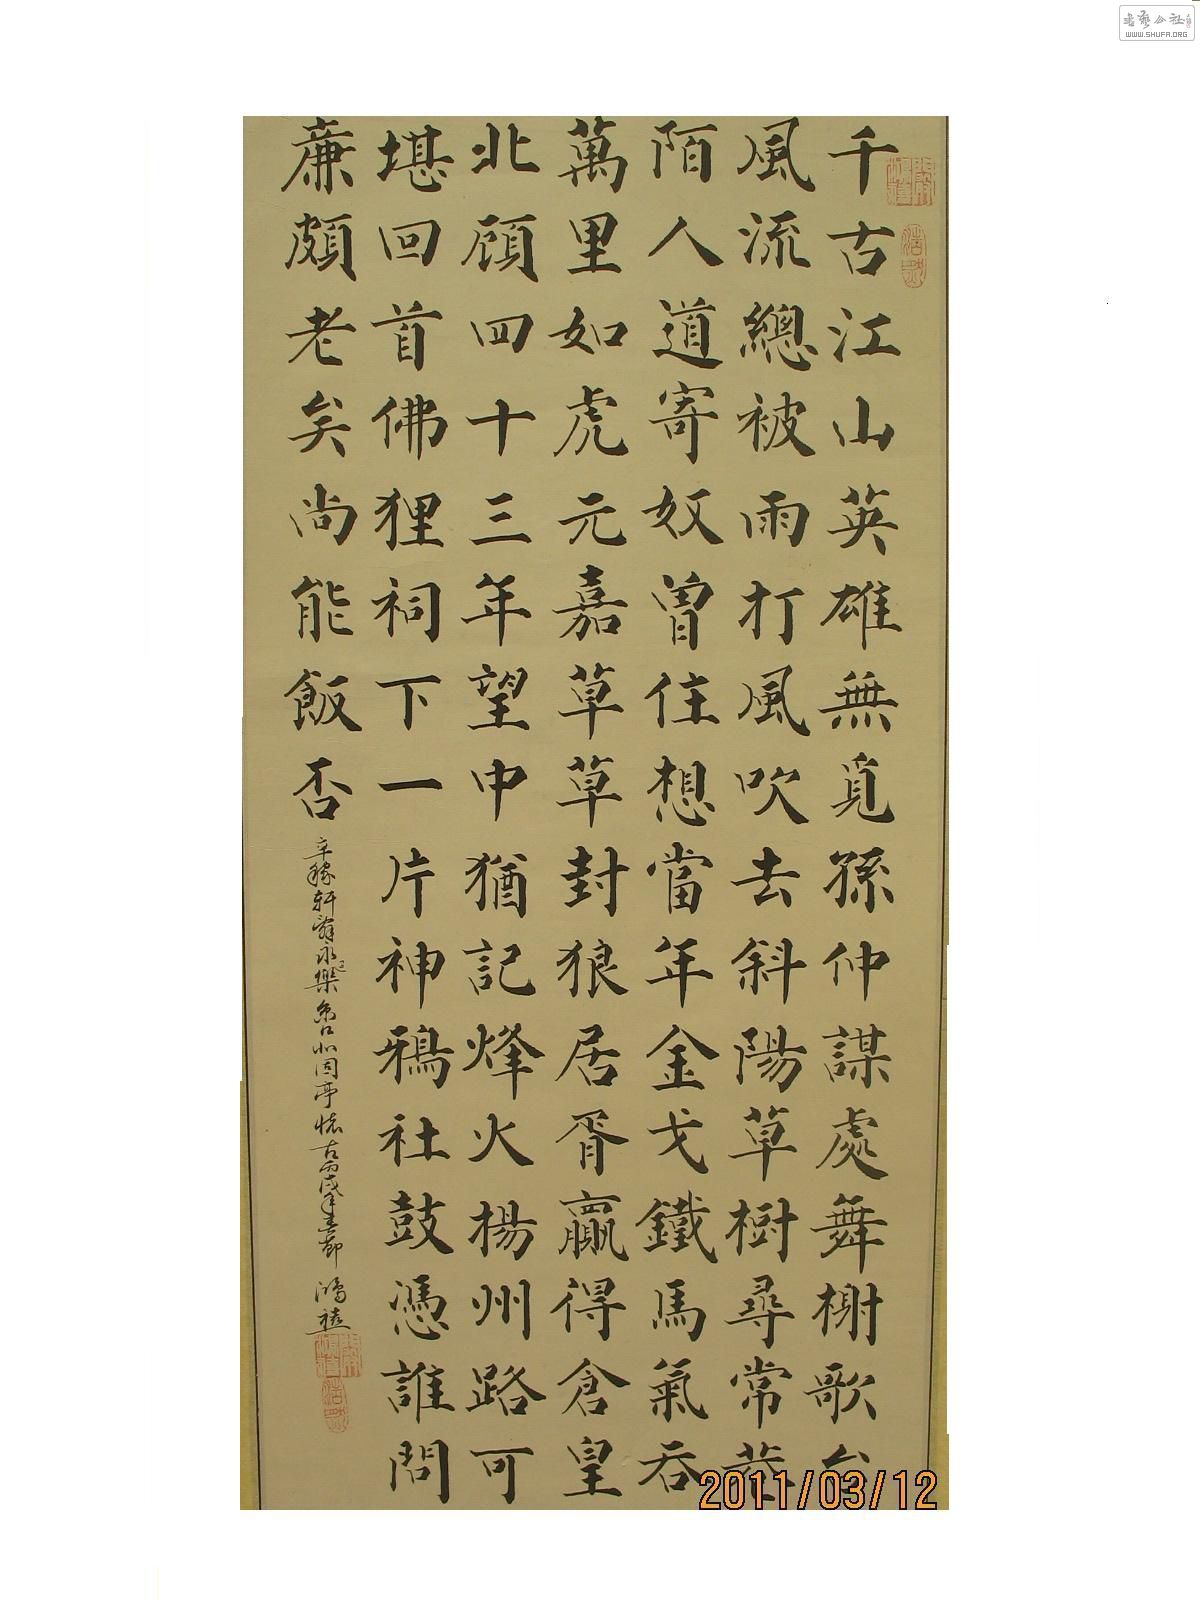 千古江山英雄無覓孫仲謀處舞榭歌台
風流總被雨打風吹去斜陽草樹尋常巷
陌人道寄奴曾住想當年金戈鐵馬氣吞
萬里如虎元嘉草草封狼居胥贏得倉皇
北顧四十三年望中猶記烽火揚州路可
堪回首佛狸祠下一片神鴉社鼓憑誰問
廉頗老矣尚能飯否
辛稼軒辭永遇樂京口北固亭懷古丙戌年春節 鴻禧
2011/03/12
書藝公社
WWW.SHUFA.ORG